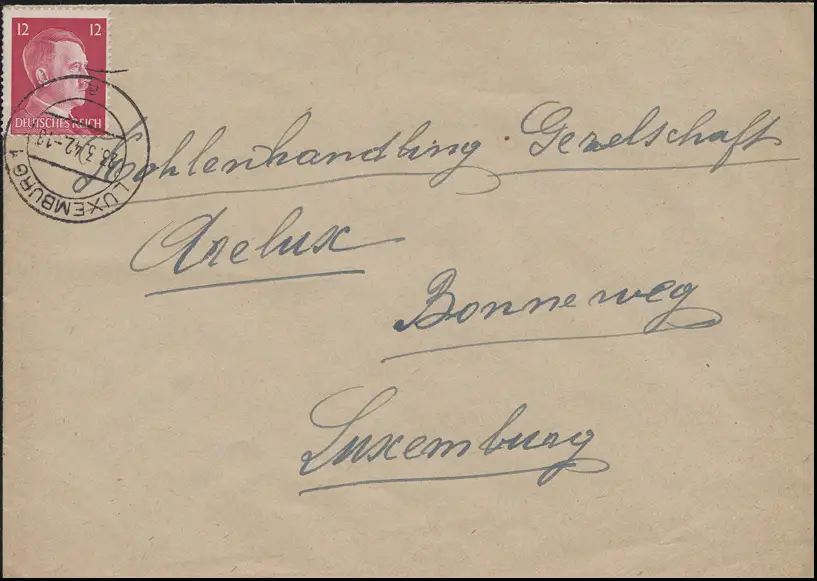 12 12
DEUTSCHES REICH
LUXEMBURG
3.42
Kohlenhandling. Gezelschaft
Arelux
Bonneweg
Luxemburg